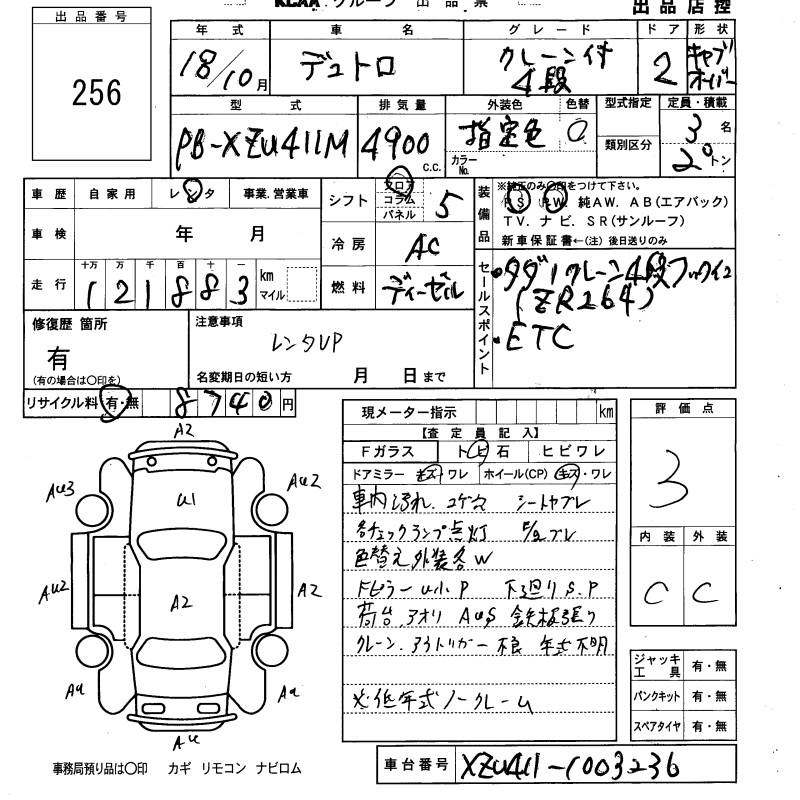 KCAA グループ 出品票
出品店控
出品番号
256
年式 車名 グレード ドア 形状
18/10月 デュトロ クレーン付 4段 2 キャブオーバー
型式 排気量 外装色 色替 型式指定 定員・積載
PB-XZU411M 4900 c.c. 指定色 カラーNo. 類別区分 3名 2.0トン
車歴 自家用 レンタ 事業.営業車
シフト フロア コラム パネル 5
装備品
※純正のみ〇印をつけて下さい。
PS PW 純AW. AB(エアバック)
TV. ナビ. SR(サンルーフ)
新車保証書←(注) 後日送りのみ
車検 年 月
冷房 AC
走行 十万 万 千 百 十 一
121883 km マイル
燃料 ディーゼル
セールスポイント
・タダノクレーン4段フックイン
(ZR264)
・ETC
修復歴 箇所
有
(有の場合は〇印を)
注意事項
レンタUP
名変期日の短い方 月 日まで
リサイクル料 有・無 8740円
現メーター指示 km
【査定員記入】
Fガラス トビ石 ヒビワレ
ドアミラー キズ・ワレ ホイール(CP) キズ・ワレ
車内汚れ.コゲ穴 シートヤブレ
各チェックランプ点灯
色替え外装各W
Fピラーu小P 下廻りS.P
荷台.アオリ AUS 鉄板張り
クレーン.アウトリガー不良 年式不明
※低年式ノークレーム
評価点
3
内装 外装
C C
ジャッキ工具 有・無
パンクキット 有・無
スペアタイヤ 有・無
A2
AU3 U1 AU2
AU2 A2 A2
AU AU
AU
事務局預り品は〇印 カギ リモコン ナビロム
車台番号 XZU411-1003236